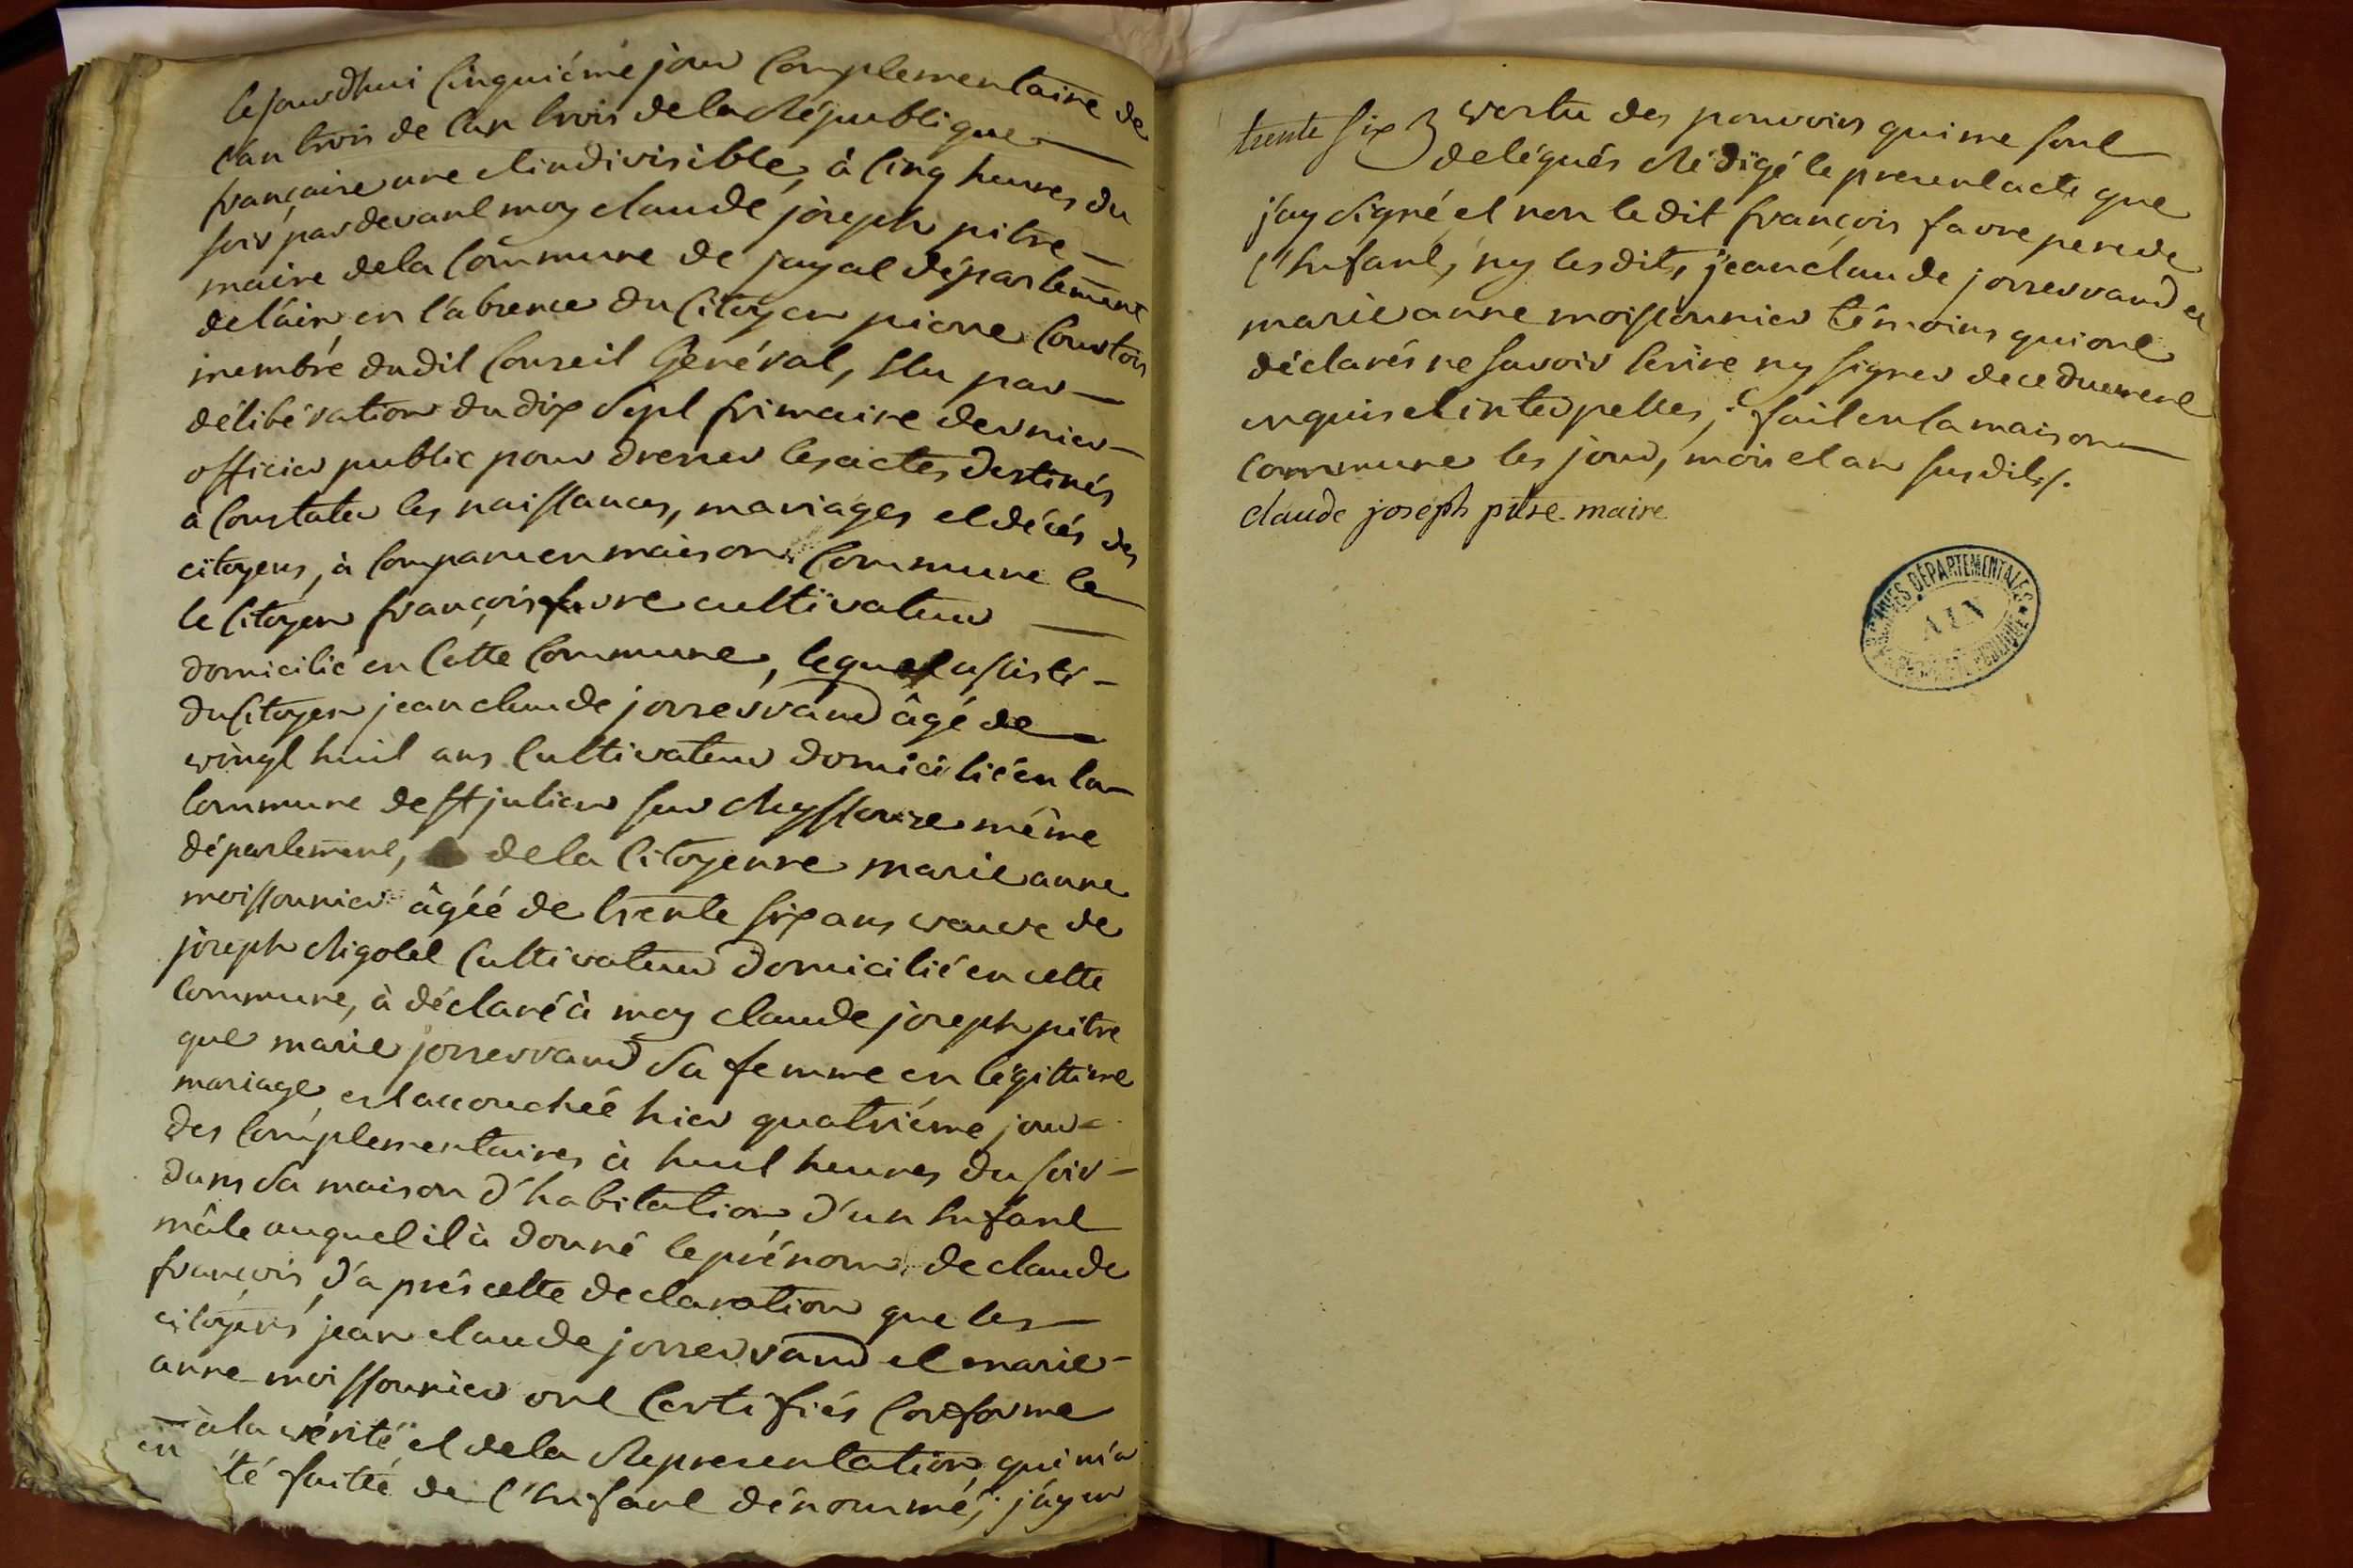 Cejourdhui Cinquiéme jour Complementaire de
l'an trois de l'an trois de la République
française une et indivisible, à Cinq heures du
soir pardevant moy claude joseph pitre
maire de la Commune de jayat département
de l'ain en l'absence du Citoyen pierre
membre dudit Conseil Général, Elu par
délibération du dix Sept frimaire dernier
officier public pour dresser les actes destinés
à Constater les naissances, mariages et décés des
citoyens, à Comparu en maison Commune le
le Citoyen françois favre cultivateur
domicilié en Cette Commune, lequel assisté
du Citoyen jean claude josservand âgé de
vingt huit ans Cultivateur domicilié en la
Commune de St julien sur Reyssouze même
département, de la Citoyenne marie anne
moissonnier âgéé de trente six ans veuve de
joseph Rigolet Cultivateur domicilié en cette
Commune, à déclaré à moy claude joseph pitre
que marie josservand Sa femme en légittime
mariage est accouchéé hier quatriéme jour
des Complementaires à huit heures du soir
dans Sa maison d'habitation d'un Enfant
mâle auquel il à donné le prénom de claude
françois, d'aprés cette declaration que les
citoyens jean claude josservand et marie
anne moissonnier ont Certifiés Conforme
à la vérité et de la Représentation qui m'a
été faitte de l'Enfant dénommé, j'ay en
trente six vertu des pouvoirs qui me sont
delégués Rédigé le present acte que
j'ay Signé et non le dit françois favre pere de
l'Enfant, ny les dits jean claude josservand et
marie anne moissonnier témoins qui ont
déclarés ne Savoir Ecrire ny signer de ce duement
enquis et interpellés, fait en la maison
Commune les jour, mois et an susdits.
claude joseph pitre maire
ARCHIVES DÉPARTEMENTALES
AIN